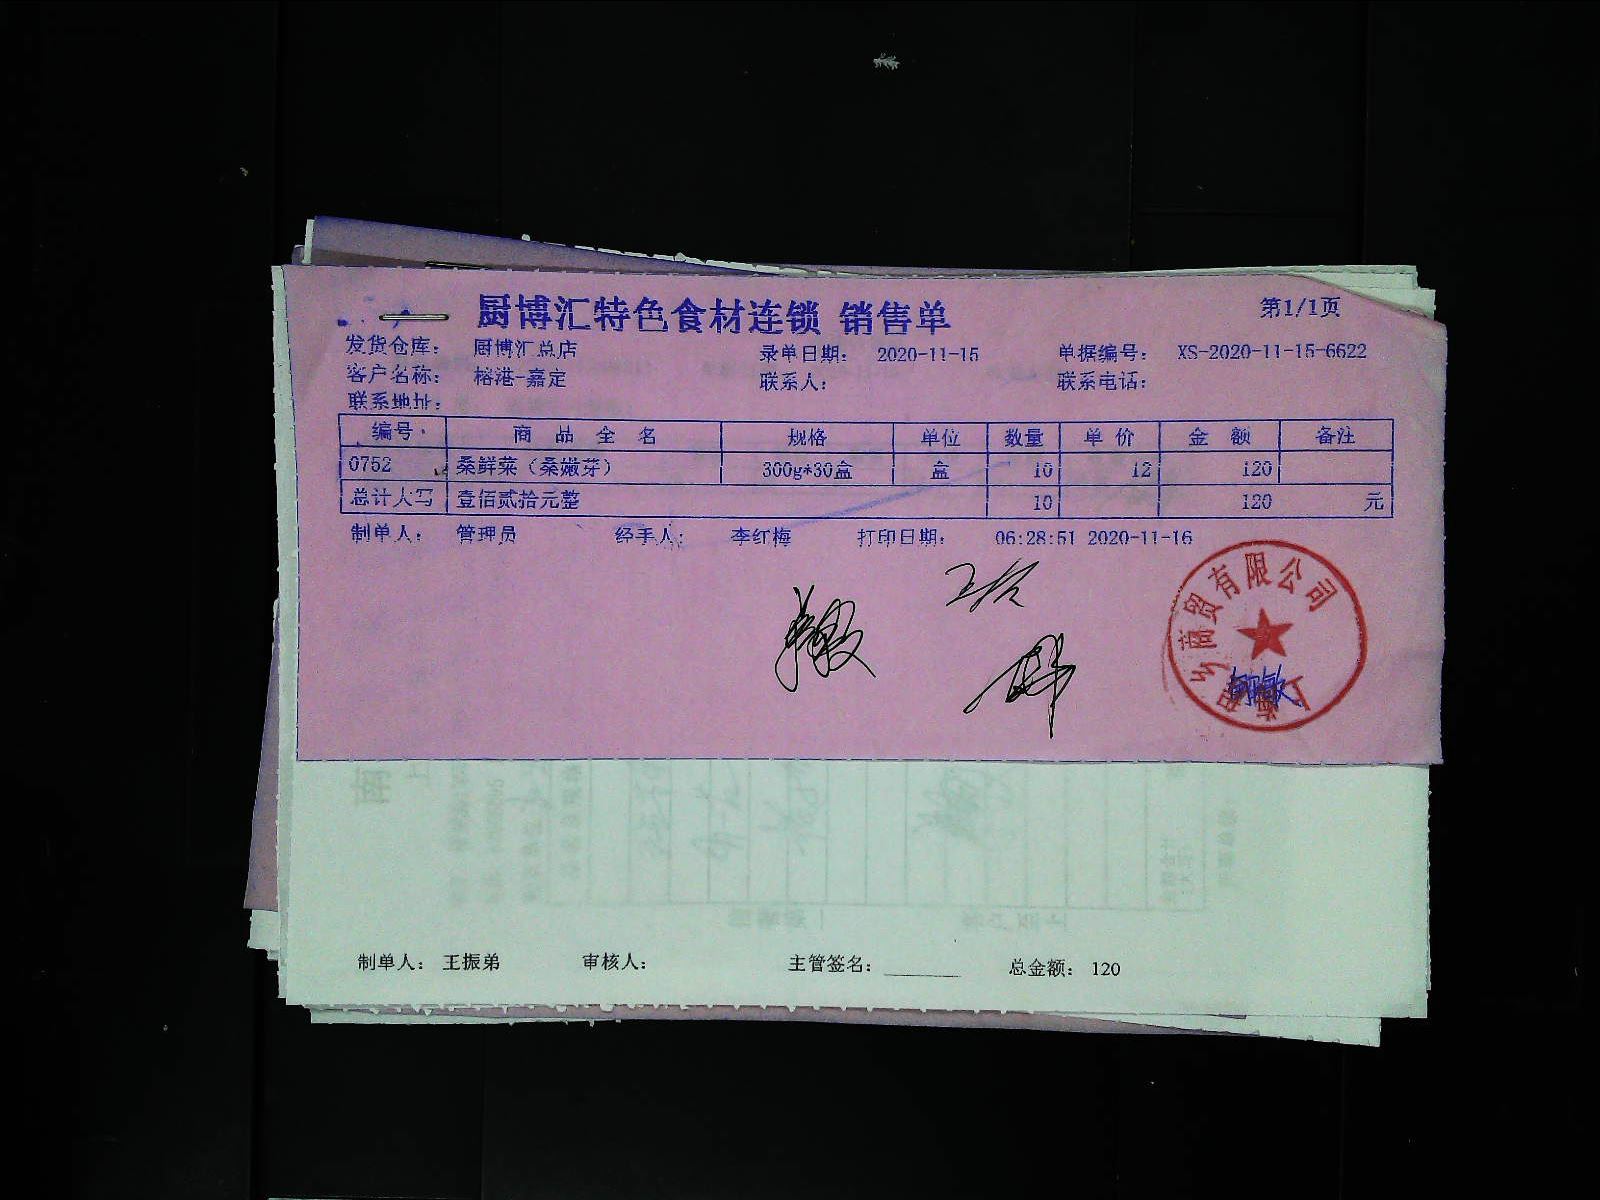 厨博汇特色食材连锁 销售单 第1/1页
发货仓库： 厨博汇总店 录单日期： 2020-11-15 单据编号： XS-2020-11-15-6622
客户名称： 榕港-嘉定 联系人： 联系电话：
联系地址：
编号 商品全名 规格 单位 数量 单价 金额 备注
0752 桑鲜菜（桑嫩芽） 300g*30盒 盒 10 12 120
总计大写 壹佰贰拾元整 10 120 元
制单人： 管理员 经手人： 李红梅 打印日期： 06:28:51 2020-11-16
商贸有限公司
制单人： 王振弟 审核人： 主管签名： 总金额： 120